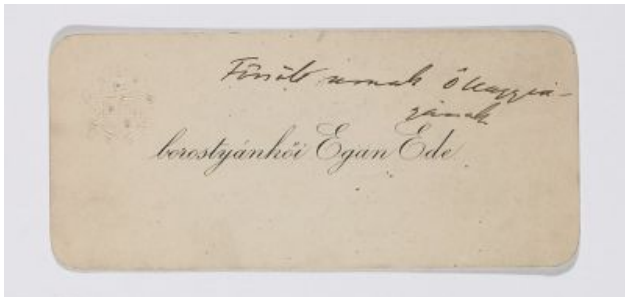 urnak Őnagysá-
gának
borostyánkői Egan Ede